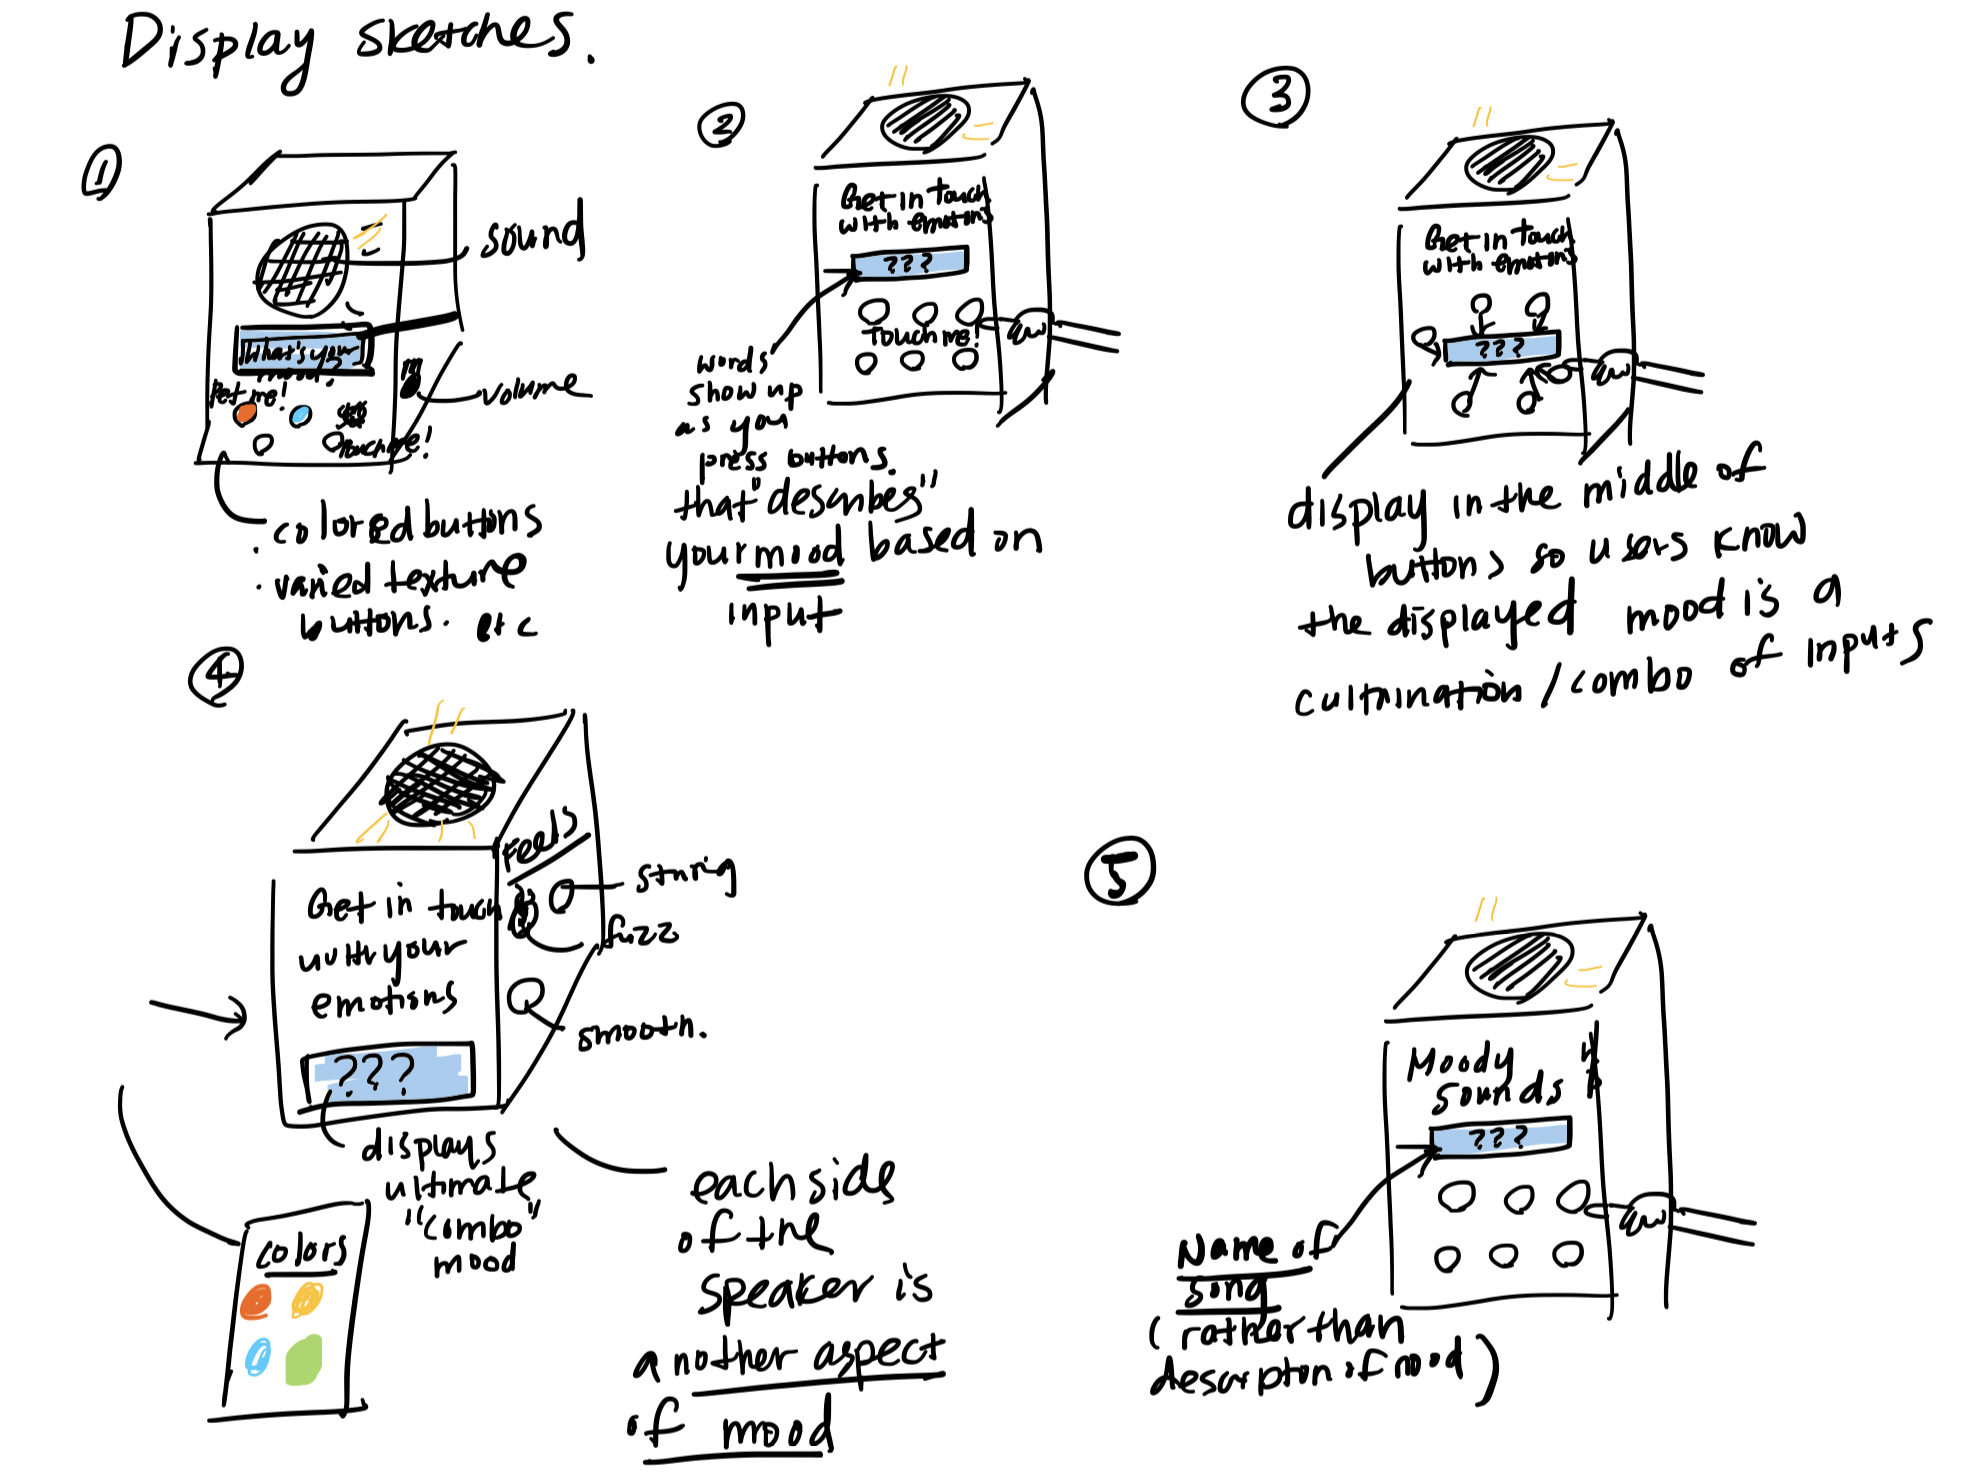 Display sketches.
①
sound
What's your
mood?
Pet me!
Touch me!
volume
· colored buttons
· varied texture
buttons. etc
②
Get in Touch
with emotions
???
Touch me!
words
show up
as you
press buttons.
that "describes"
your mood based on
input
③
Get in Touch
with emotions
???
display in the middle of
buttons so users know
the displayed mood is a
culmination / combo of inputs
④
Feels
string
fuzz
smooth.
Get in touch
with your
emotions
???
displays
ultimate
"combo"
mood
colors
each side
of the
speaker is
another aspect
of mood
⑤
Moody
sounds
???
Name of
song
(rather than
description of mood)